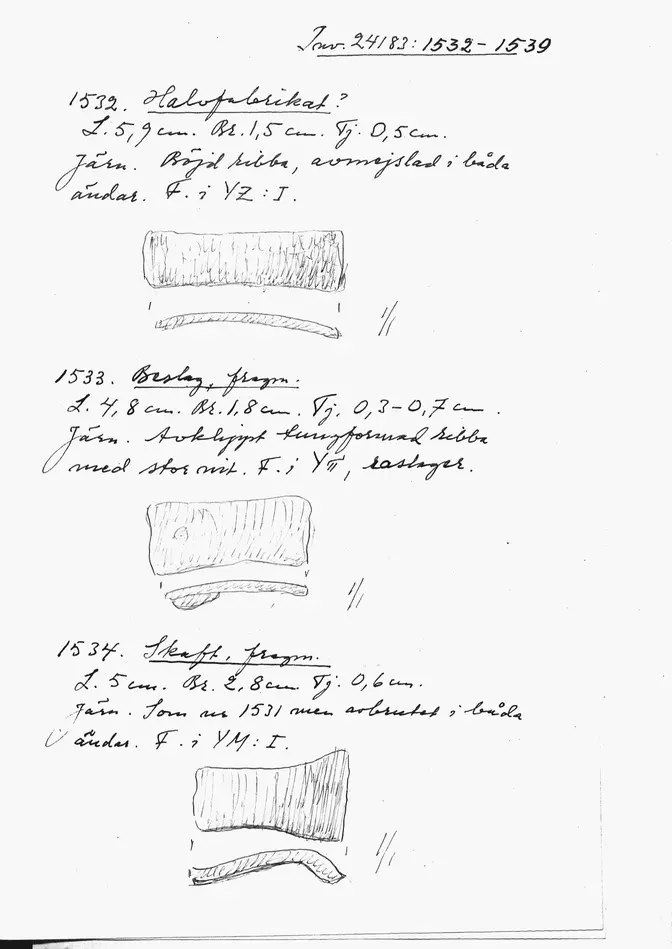 Inv. 24183: 1532-1539
1532. Halvfabrikat?
L. 5,9 cm. Br. 1,5 cm. Tj. 0,5 cm.
Järn. Böjd ribba, avmejslad i båda
ändar. F. i YZ: I.
1/1
1533. Beslag, fragm.
L. 4,8 cm. Br. 1,8 cm. Tj. 0,3-0,7 cm.
Järn. Avklippt tungformad ribba
med stor nit. F. i Y, raslager.
1/1
1534. Skaft, fragm.
L. 5 cm. Br. 2,8 cm. Tj. 0,6 cm.
Järn. Som nr 1531 men avbrutet i båda
ändar. F. i YM: I.
1/1